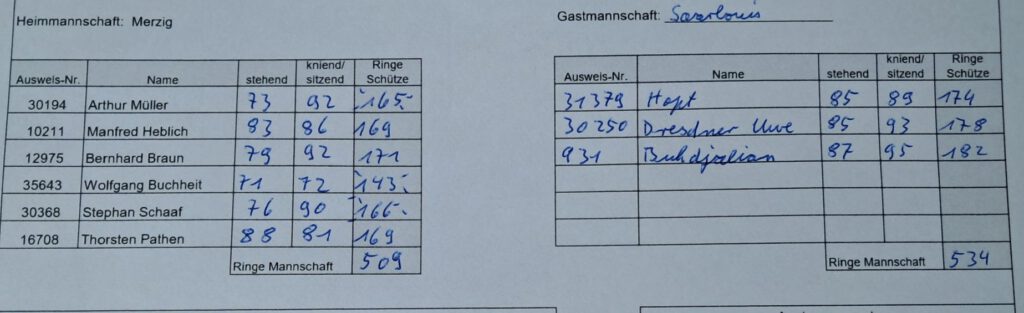 Heimmannschaft: Merzig
Ausweis-Nr. Name stehend kniend/ sitzend Ringe Schütze
30194 Arthur Müller 73 92 165
10211 Manfred Heblich 83 86 169
12975 Bernhard Braun 79 92 171
35643 Wolfgang Buchheit 71 72 143
30368 Stephan Schaaf 76 90 166
16708 Thorsten Pathen 88 81 169
Ringe Mannschaft 509
Gastmannschaft: Saarlouis
Ausweis-Nr. Name stehend kniend/ sitzend Ringe Schütze
31379 85 89 174
30250 Dresdner Uwe 85 93 178
931 87 95 182
Ringe Mannschaft 534